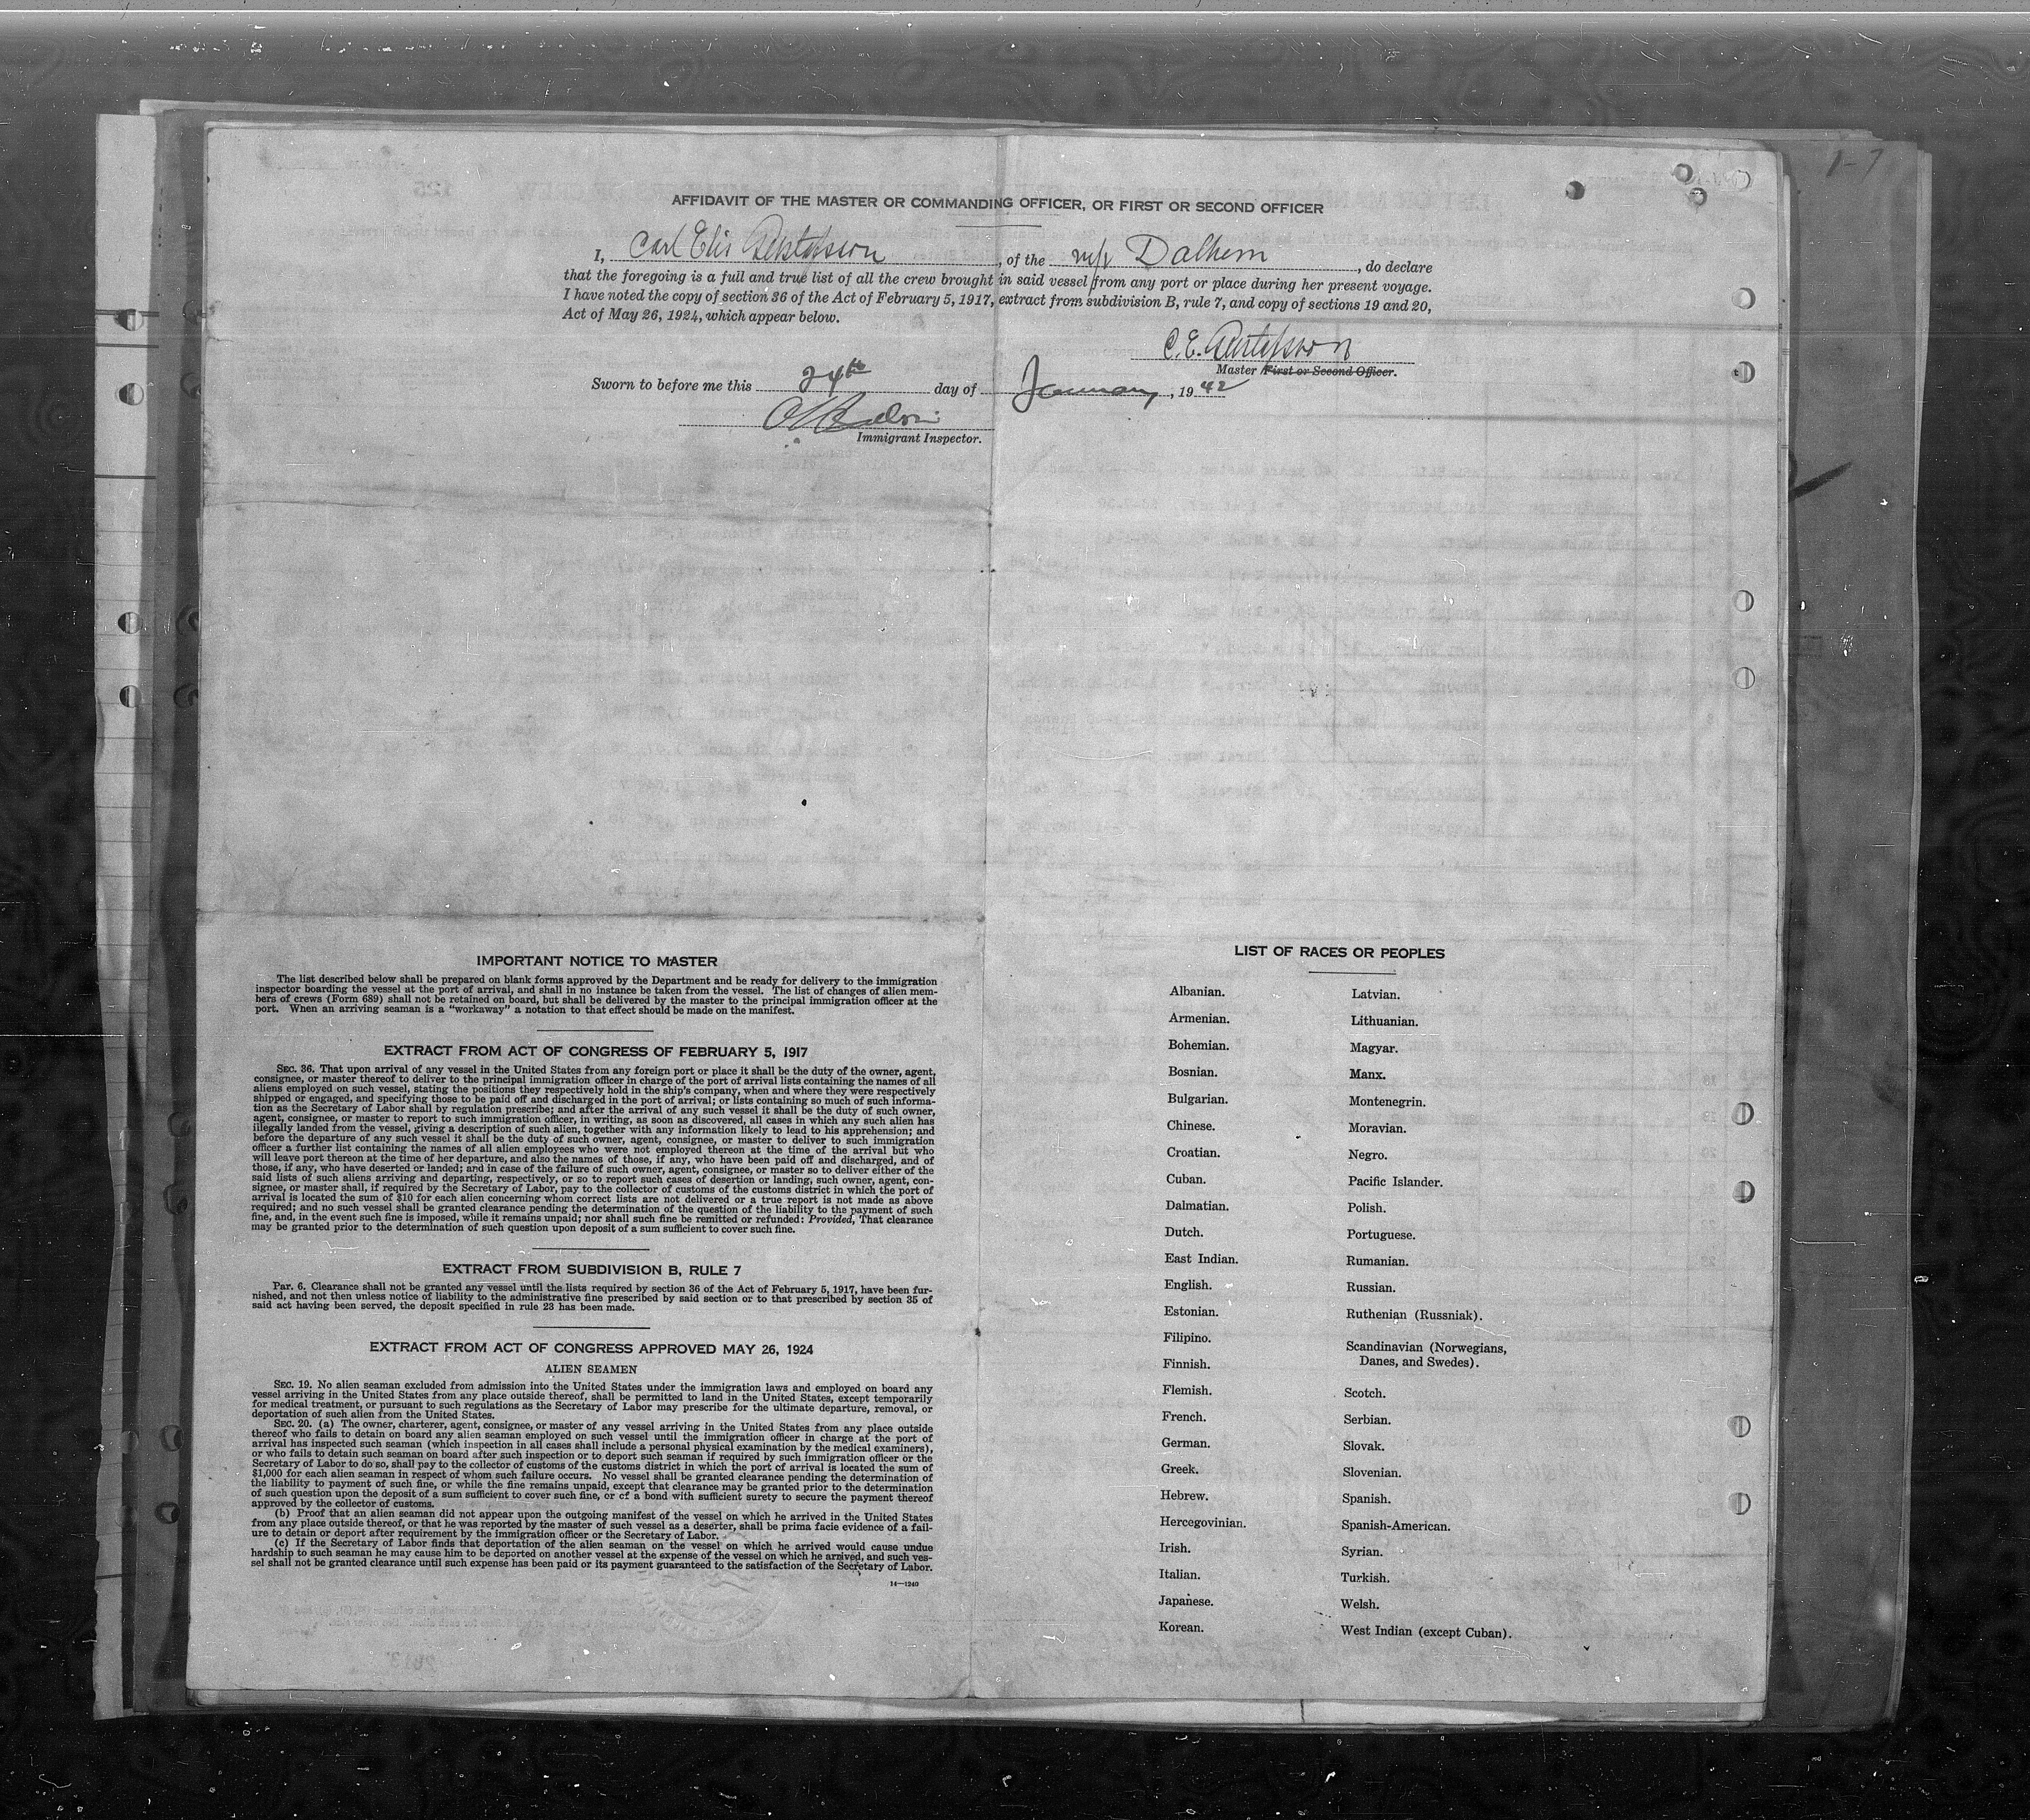 AFFIDAVIT OF THE MASTER OR COMMANDING OFFICER, OR FIRST OR SECOND OFFICER
I, Carl Elis Gustafsson, of the m/s Dalhem, do declare
that the foregoing is a full and true list of all the crew brought in said vessel from any port or place during her present voyage.
I have noted the copy of section 36 of the Act of February 5, 1917, extract from subdivision B, rule 7, and copy of sections 19 and 20,
Act of May 26, 1924, which appear below.
C. E. Gustafsson
Master First or Second Officer.
Sworn to before me this 24th day of January, 1942
Immigrant Inspector.
1-7
IMPORTANT NOTICE TO MASTER
The list described below shall be prepared on blank forms approved by the Department and be ready for delivery to the immigration
inspector boarding the vessel at the port of arrival, and shall in no instance be taken from the vessel. The list of changes of alien mem-
bers of crews (Form 689) shall not be retained on board, but shall be delivered by the master to the principal immigration officer at the
port. When an arriving seaman is a "workaway" a notation to that effect should be made on the manifest.
EXTRACT FROM ACT OF CONGRESS OF FEBRUARY 5, 1917
SEC. 36. That upon arrival of any vessel in the United States from any foreign port or place it shall be the duty of the owner, agent,
consignee, or master thereof to deliver to the principal immigration officer in charge of the port of arrival lists containing the names of all
aliens employed on such vessel, stating the positions they respectively hold in the ship's company, when and where they were respectively
shipped or engaged, and specifying those to be paid off and discharged in the port of arrival; or lists containing so much of such informa-
tion as the Secretary of Labor shall by regulation prescribe; and after the arrival of any such vessel it shall be the duty of such owner,
agent, consignee, or master to report to such immigration officer, in writing, as soon as discovered, all cases in which any such alien has
illegally landed from the vessel, giving a description of such alien, together with any information likely to lead to his apprehension; and
before the departure of any such vessel it shall be the duty of such owner, agent, consignee, or master to deliver to such immigration
officer a further list containing the names of all alien employees who were not employed thereon at the time of the arrival but who
will leave port thereon at the time of her departure, and also the names of those, if any, who have been paid off and discharged, and of
those, if any, who have deserted or landed; and in case of the failure of such owner, agent, consignee, or master so to deliver either of the
said lists of such aliens arriving and departing, respectively, or so to report such cases of desertion or landing, such owner, agent, con-
signee, or master shall, if required by the Secretary of Labor, pay to the collector of customs of the customs district in which the port of
arrival is located the sum of $10 for each alien concerning whom correct lists are not delivered or a true report is not made as above
required; and no such vessel shall be granted clearance pending the determination of the question of the liability to the payment of such
fine, and, in the event such fine is imposed, while it remains unpaid; nor shall such fine be remitted or refunded: Provided, That clearance
may be granted prior to the determination of such question upon deposit of a sum sufficient to cover such fine.
EXTRACT FROM SUBDIVISION B, RULE 7
Par. 6. Clearance shall not be granted any vessel until the lists required by section 36 of the Act of February 5, 1917, have been fur-
nished, and not then unless notice of liability to the administrative fine prescribed by said section or to that prescribed by section 35 of
said act having been served, the deposit specified in rule 23 has been made.
EXTRACT FROM ACT OF CONGRESS APPROVED MAY 26, 1924
ALIEN SEAMEN
SEC. 19. No alien seaman excluded from admission into the United States under the immigration laws and employed on board any
vessel arriving in the United States from any place outside thereof, shall be permitted to land in the United States, except temporarily
for medical treatment, or pursuant to such regulations as the Secretary of Labor may prescribe for the ultimate departure, removal, or
deportation of such alien from the United States.
SEC. 20. (a) The owner, charterer, agent, consignee, or master of any vessel arriving in the United States from any place outside
thereof who fails to detain on board any alien seaman employed on such vessel until the immigration officer in charge at the port of
arrival has inspected such seaman (which inspection in all cases shall include a personal physical examination by the medical examiners),
or who fails to detain such seaman on board after such inspection or to deport such seaman if required by such immigration officer or the
Secretary of Labor to do so, shall pay to the collector of customs of the customs district in which the port of arrival is located the sum of
$1,000 for each alien seaman in respect of whom such failure occurs. No vessel shall be granted clearance pending the determination of
the liability to the payment of such fine, or while the fine remains unpaid, except that clearance may be granted prior to the determination
of such question upon the deposit of a sum sufficient to cover such fine, or of a bond with sufficient surety to secure the payment thereof
approved by the collector of customs.
(b) Proof that an alien seaman did not appear upon the outgoing manifest of the vessel on which he arrived in the United States
from any place outside thereof, or that he was reported by the master of such vessel as a deserter, shall be prima facie evidence of a fail-
ure to detain or deport after requirement by the immigration officer or the Secretary of Labor.
(c) If the Secretary of Labor finds that deportation of the alien seaman on the vessel on which he arrived would cause undue
hardship to such seaman he may cause him to be deported on another vessel at the expense of the vessel on which he arrived, and such ves-
sel shall not be granted clearance until such expense has been paid or its payment guaranteed to the satisfaction of the Secretary of Labor.
14—1240
LIST OF RACES OR PEOPLES
Albanian.
Armenian.
Bohemian.
Bosnian.
Bulgarian.
Chinese.
Croatian.
Cuban.
Dalmatian.
Dutch.
East Indian.
English.
Estonian.
Filipino.
Finnish.
Flemish.
French.
German.
Greek.
Hebrew.
Hercegovinian.
Irish.
Italian.
Japanese.
Korean.
Latvian.
Lithuanian.
Magyar.
Manx.
Montenegrin.
Moravian.
Negro.
Pacific Islander.
Polish.
Portuguese.
Rumanian.
Russian.
Ruthenian (Russniak).
Scandinavian (Norwegians,
Danes, and Swedes).
Scotch.
Serbian.
Slovak.
Slovenian.
Spanish.
Spanish-American.
Syrian.
Turkish.
Welsh.
West Indian (except Cuban).